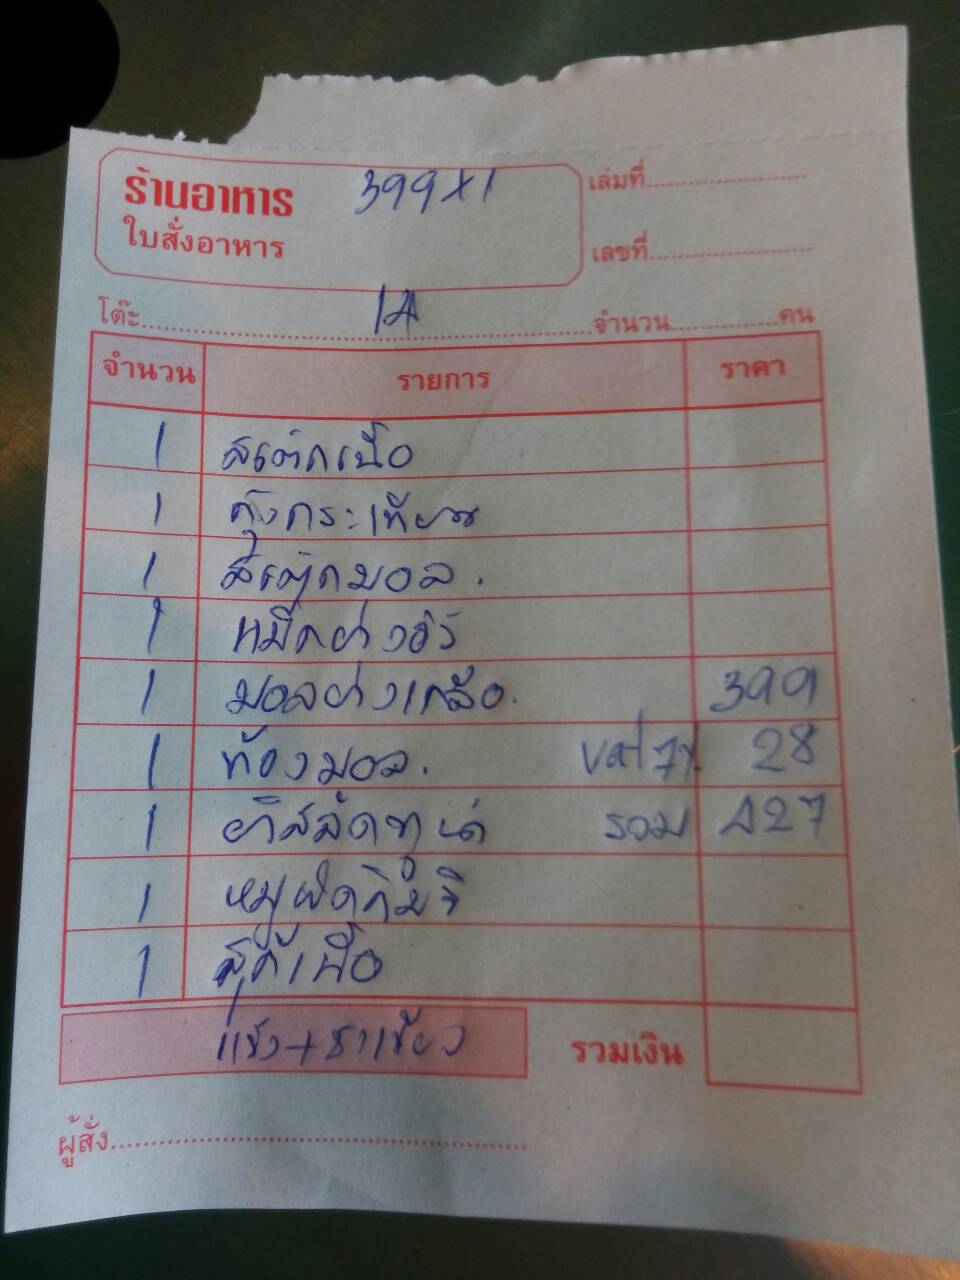 ร้านอาหาร 399x1
ใบสั่งอาหาร
เล่มที่
เลขที่
โต๊ะ 14 จำนวน คน
จำนวน รายการ ราคา
1 สเต๊กเนื้อ
1 กุ้งกระเทียม
1 สเต๊กมอล.
1 หมึกย่าง
1 มอลย่างเกลือ. 399
1 ท้องมอล. vat 7% 28
1 ยำสลัดทูน่า รวม 427
1 หมูผัดกิมจิ
1 สุกี้เนื้อ
แข็ง+ชาเขียว รวมเงิน
ผู้สั่ง